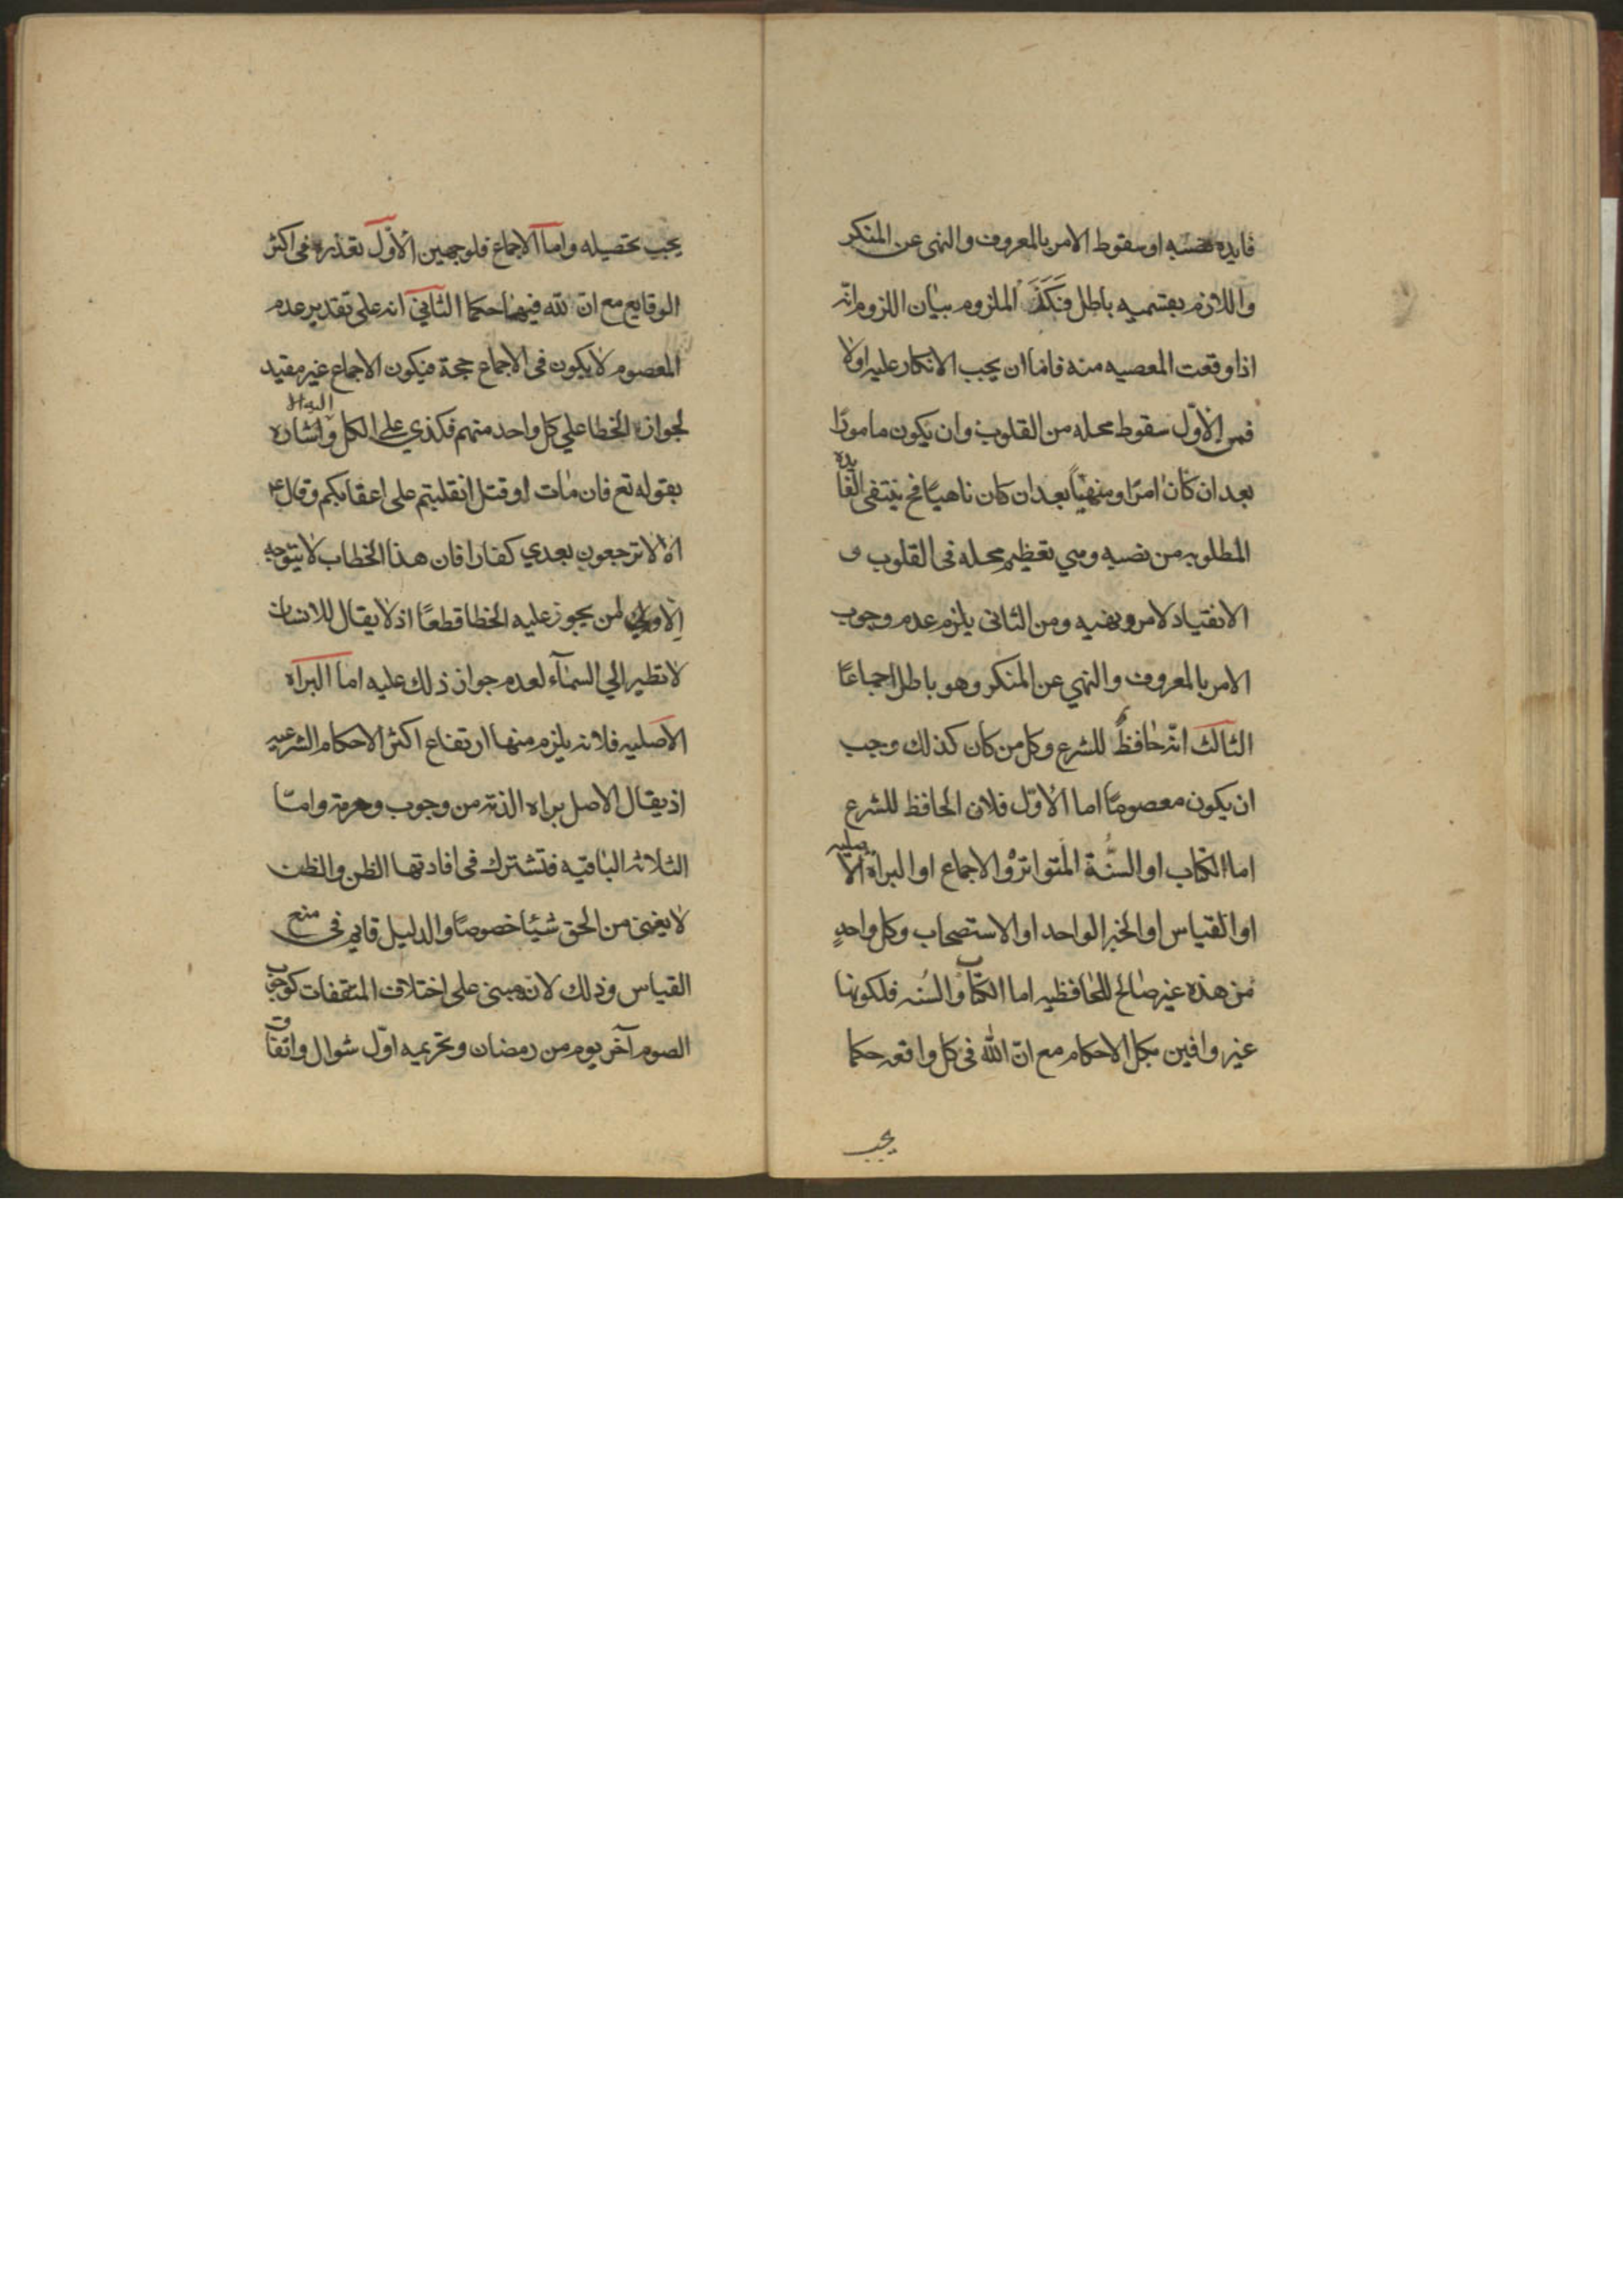 فايده نصبه او سقوط الامر بالمعروف والنهى عن المنكر
واللازم بقسميه باطل فكَذَا الملزوم بيان اللزوم انّه
اذا وقعت المعصيه منه فاما ان يجب الانكار عليه اولا
فمن الاوّل سقوط محله من القلوب وان يكون مامورًا
بعد ان كان امرًا ومنهيًا بعد ان كان ناهيًا فح ينتفى الفايده
المطلوبه من نصبه وهي تعظيم محله فى القلوب و
الانقياد لامره ونهيه ومن الثانى يلزم عدم وجوب
الامر بالمعروف والنهي عن المنكر وهو باطل اجماعًا
الثالث انّه حافظٌ للشرع وكل من كان كذلك وجب
ان يكون معصومًا اما الاوّل فلان الحافظ للشرع
اما الكتاب او السنّة المتواترة والاجماع او البراة الاصليه
او القياس او الخبر الواحد او الاستصحاب وكل واحدٍ
من هذه غير صالح للمحافظيه اما الكتاب والسنه فلكونها
غير وافيين بكل الاحكام مع انّ الله فى كل واقعه حكما
يجب
يجب تحصيله واما الاجماع فلوجهين الاوّل تعذره فى اكثر
الوقايع مع ان لله فيها حكما الثاني انه على تقدير عدم
المعصوم لا يكون فى الاجماع حجة فيكون الاجماع غير مفيد
لجواز الخطا علي كل واحد منهم فكذي على الكل واشاره اليه
بقوله تع فان مات او قتل انقلبتم على اعقابكم وقال ع
الا لا ترجعون بعدي كفارا فان هذا الخطاب لا يتوجه
الا لمن يجوز عليه الخطا قطعًا اذ لا يقال للانسان
لا تطير الي السمآء لعدم جواز ذلك عليه اما البراه
الاصليه فلانه يلزم منها ارتفاع اكثر الاحكام الشرعيه
اذ يقال الاصل براه الذمه من وجوب وحرمة وامّا
الثلاثه الباقيه فتشترك فى افادتها الظن والظن
لا يغنى من الحق شيئا خصوصًا والدليل قايم فى منع
القياس وذلك لانّ مبنى على اختلاف المتفقات كوجوب
الصوم آخر يوم من رمضان وتحريمه اوّل شوال واتفاق